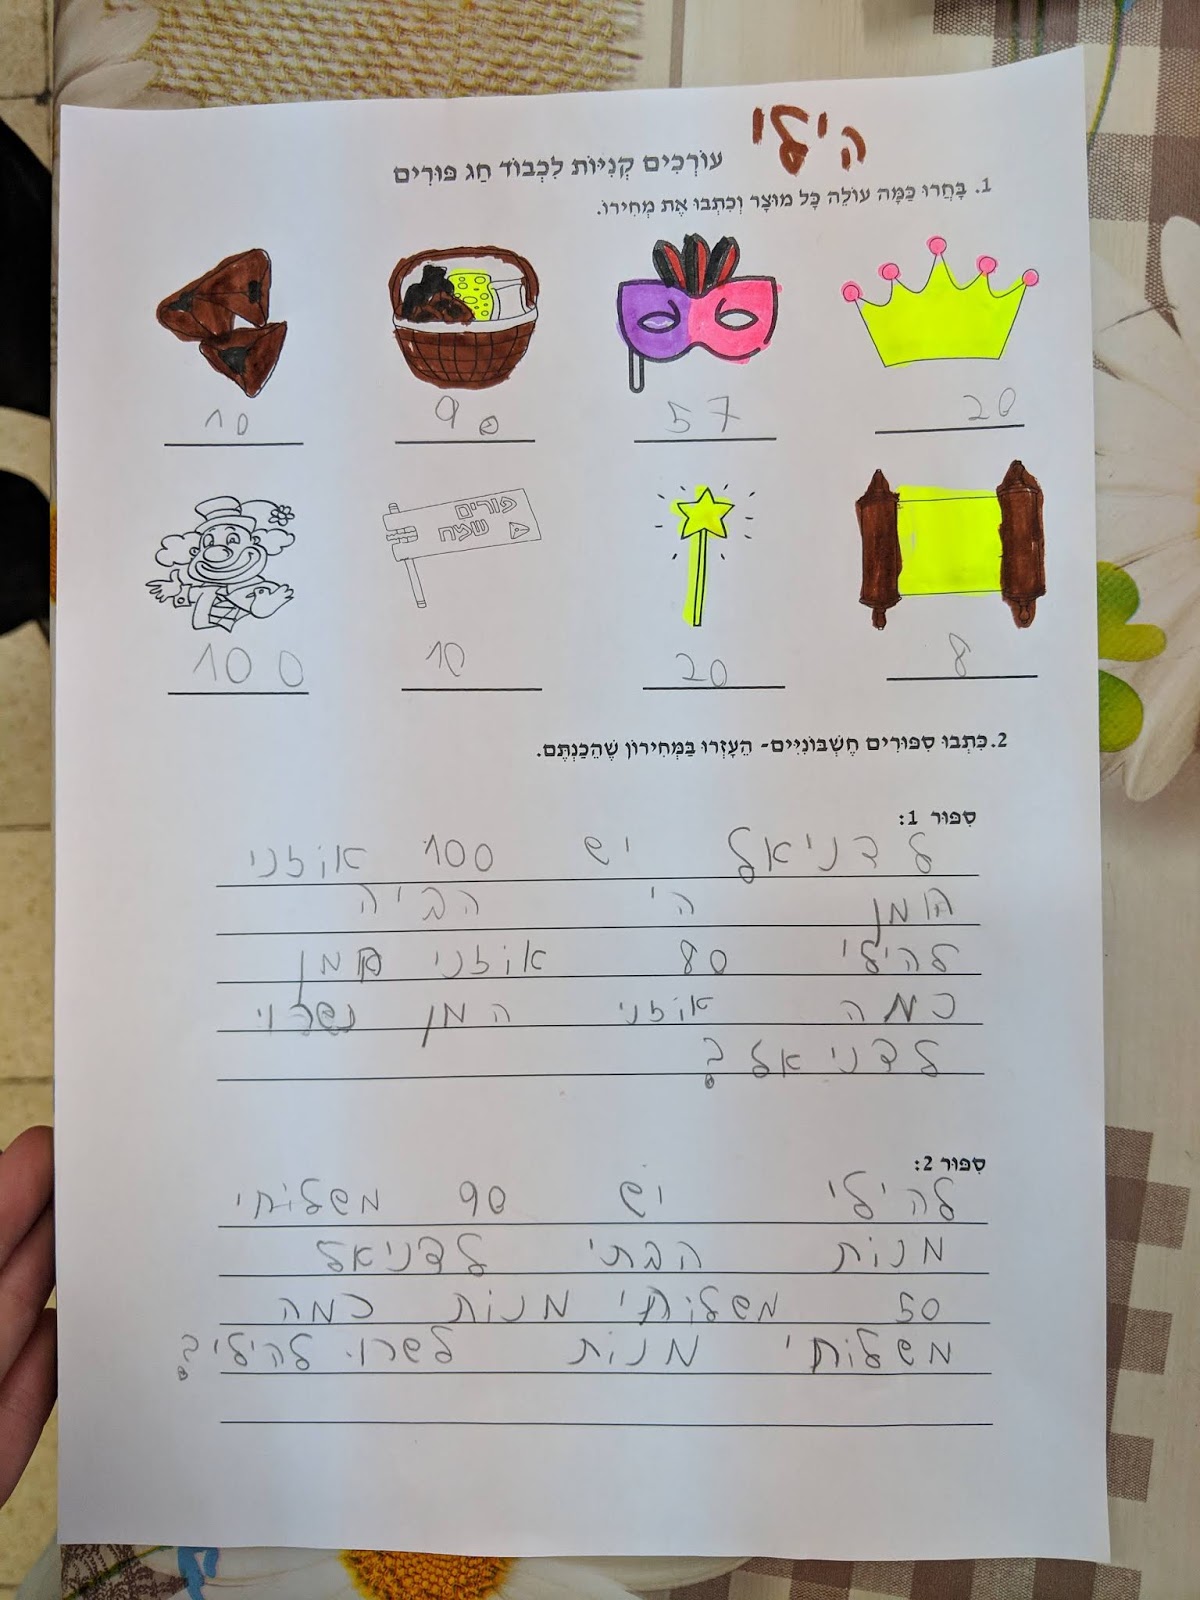 הילי
עוֹרְכִים קְנִיּוֹת לִכְבוֹד חַג פּוּרִים
1. בַּחֲרוּ כַּמָּה עוֹלֶה כָּל מוּצָר וְכִתְבוּ אֶת מְחִירוֹ.
20 57 90 10
פורים
שמח
8 20 10 100
2. כִּתְבוּ סִפּוּרִים חֶשְׁבּוֹנִיִּים- הֵעָזְרוּ בַּמְּחִירוֹן שֶׁהֵכַנְתֶּם.
סִפּוּר 1:
לדניאל יש 100 אוזני
המן הי הביה
להילי 80 אוזני המן
כמה אוזני המן נשרוי
לדניאל?
סִפּוּר 2:
להילי יש 90 משלוחי
מנות הבתי לדניאל
50 משלוחי מנות כמה
משלוחי מנות לשרוי להילי?